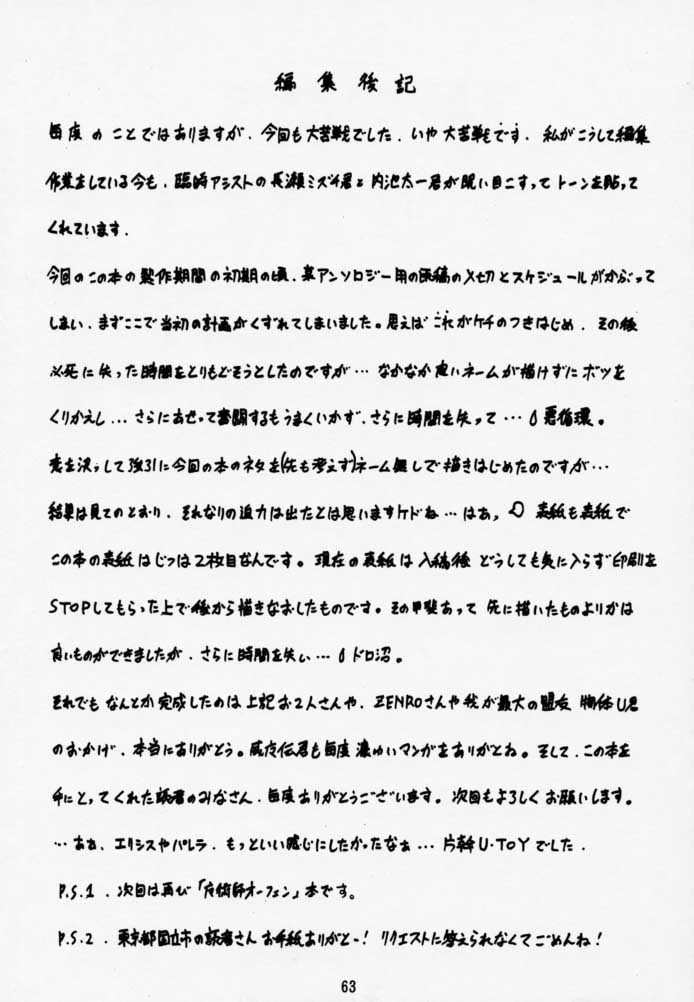 編集後記
毎度のことではありますが、今回も大苦戦でした、いや大苦戦です。私がこうして編集
作業をしている今も、臨時アシストの長瀬ミズチ君と内池太一君が眠い目こすってトーンを貼って
くれています。
今回のこの本の製作期間の初期の頃、某アンソロジー用の原稿の〆切とスケジュールがかぶって
しまい、まずここで当初の計画がくずれてしまいました。思えばこれがケチのつきはじめ、その後
必死に失った時間をとりもどそうとしたのですが…なかなか良いネームが描けずにボツを
くりかえし…さらにあせって奮闘するもうまくいかず、さらに時間を失って…悪循環。
意を決っして強引に今回の本のネタを(先も考えず)ネーム無しで描きはじめたのですが…
結果は見てのとおり、それなりの迫力は出たとは思いますケドね…はあ。表紙も表紙で
この本の表紙はじつは2枚目なんです。現在の表紙は入稿後どうしても気に入らず印刷を
STOPしてもらった上で後から描きなおしたものです。その甲斐あって先に描いたものよりかは
良いものができましたが、さらに時間を失い…ドロ沼。
それでもなんとか完成したのは上記お2人さんや、ZENROさんや我が最大の盟友 物体U君
のおかげ、本当にありがとう。威夜伝君も毎度濃ゆいマンガをありがとね。そして、この本を
手にとってくれた読者のみなさん、毎度ありがとうございます。次回もよろしくお願いします。
…ああ、エリシスやパレラ、もっといい感じにしたかったなぁ…片幹U・TOYでした。
P.S.1、次回は再び「魔術師オーフェン」本です。
P.S.2、東京都国立市の読者さんお手紙ありがとー!リクエストに答えられなくてごめんね!
63